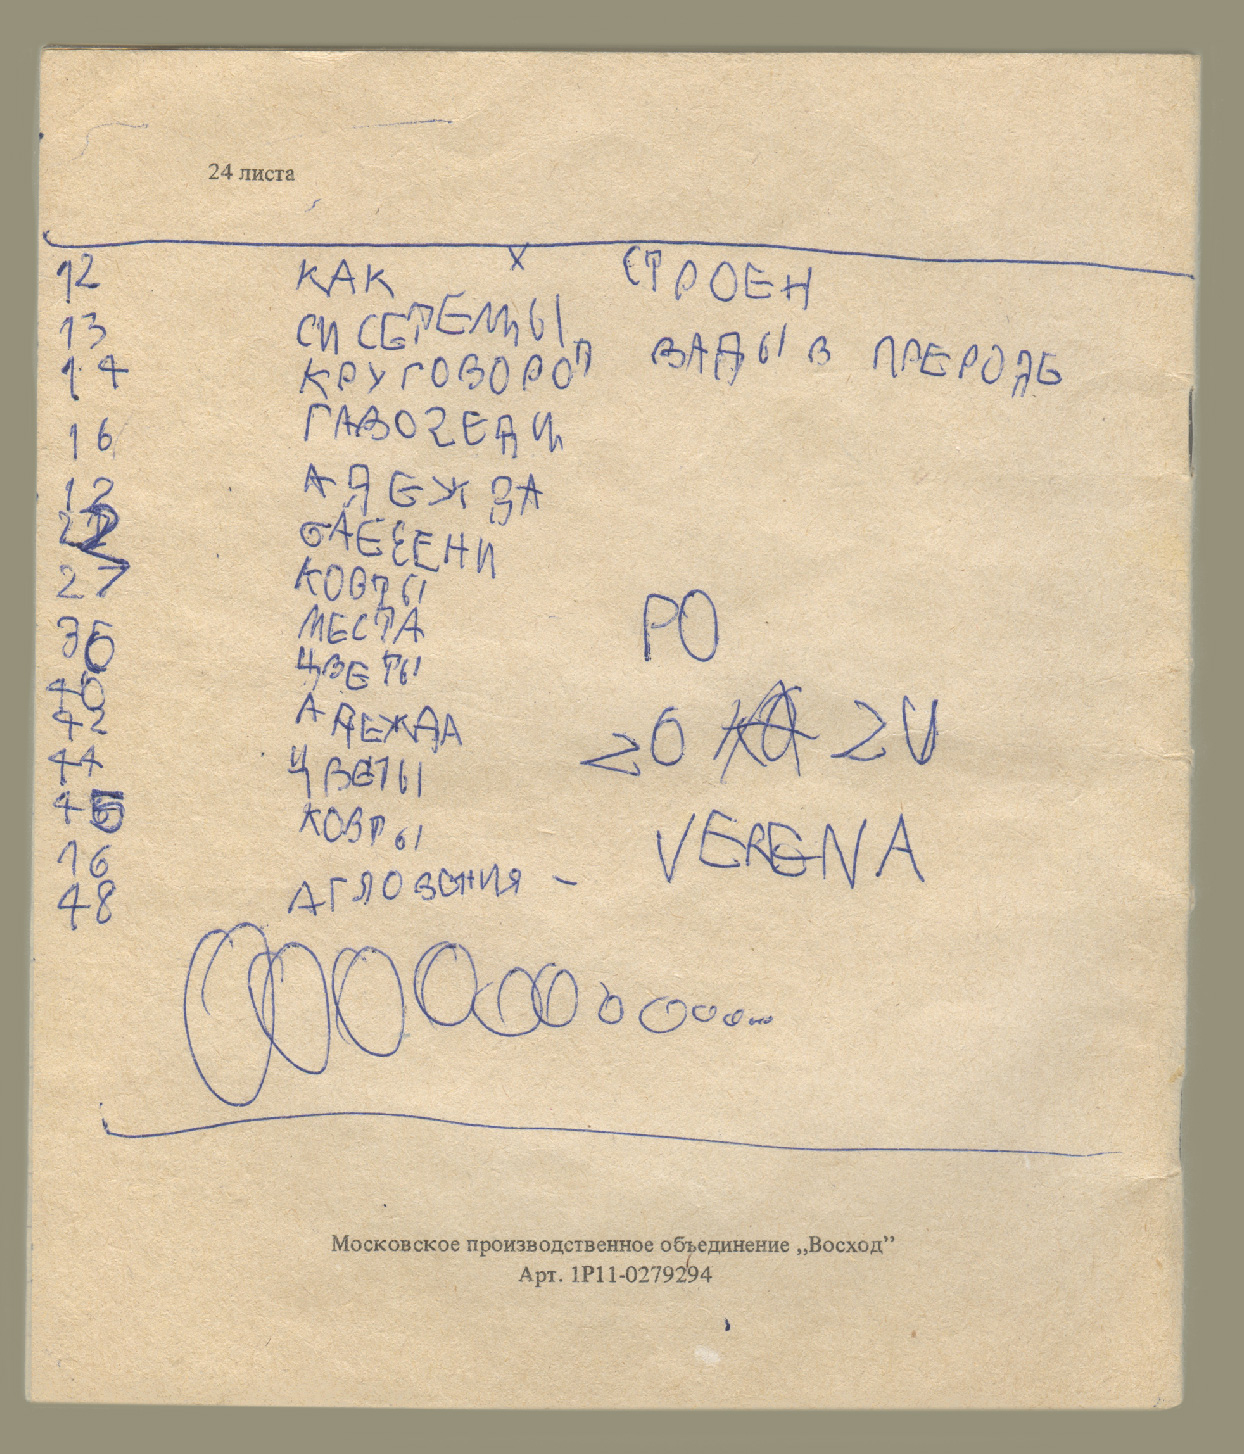 24 листа
12 КАК Х СТРОЕН
13
14 КРУГОВОРОТ ВАДЫ В ПРЕРОДЕ
16
12 АДЕЖДА
22
27 КОВРЫ
36 МЕСТА
40 ЦВЕТЫ
42 АДЕЖДА
44 ЦВЕТЫ
45 КОВРЫ
16
48 АГЛОВЕНИЯ –
РО
20 2U
VERENA
Московское производственное объединение „Восход”
Арт. 1Р11-0279294